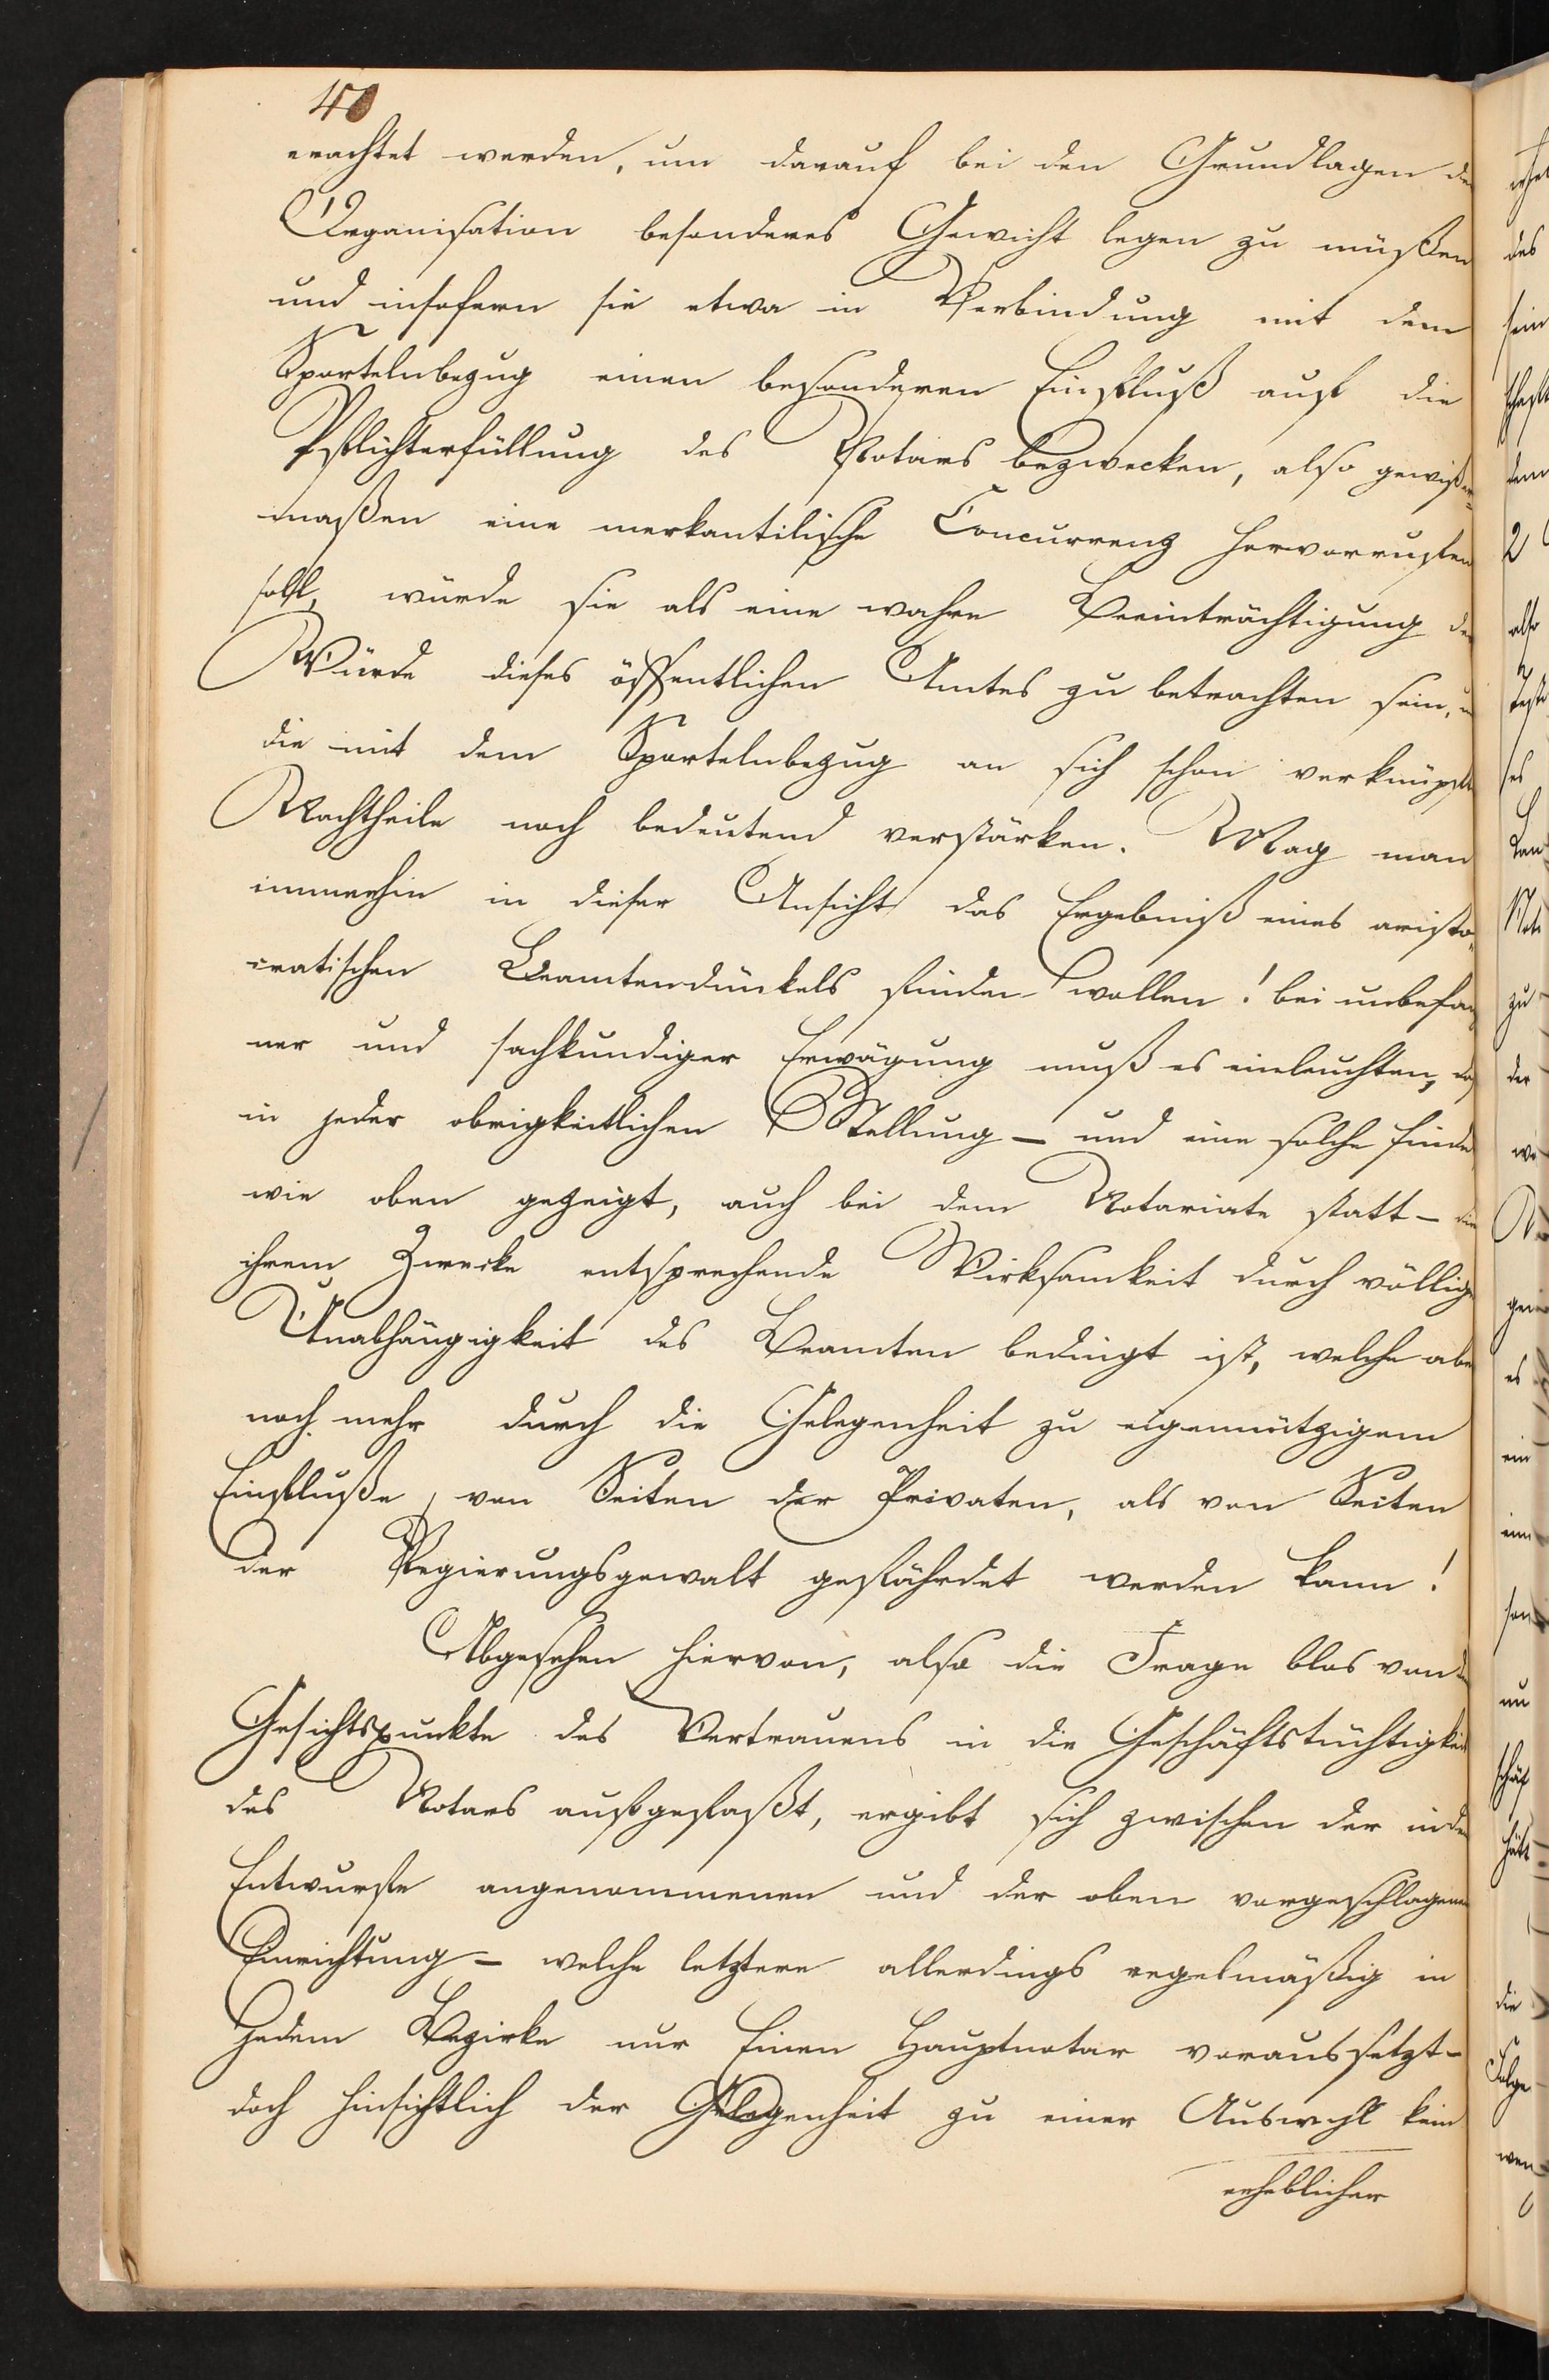 40
erachtet werden, um darauf bei den Grundlagen der
Organisation besonderes Gewicht legen zu müßen
und insofern sie etwa in Verbindung mit dem
Sportelnbezug einen besonderen Einfluß auf die
Pflichterfüllung des Notars bezwecken, also gewißer-
maßen eine merkantilische Concurrenz hervorrufen
soll, würde sie als eine wahre Beeinträchtigung der
Würde dieses öffentlichen Amtes zu betrachten sein, u
die mit dem Sportelnbezug an sich schon verknüpft
Nachtheile noch bedeutend verstärken. Mag man
immerhin in dieser Ansicht das Ergebniß eines aristo-
cratischen Beamtendünkels finden wollen! bei unbefan
ner und sachkundiger Erwägung muß es einleuchten, daß
in jeder obrigkeitlichen Stellung – und eine solche finde
wie oben gezeigt, auch bei dem Notariate statt – die
ihrem Zwecke entsprechende Wirksamkeit durch völlige
Unabhängigkeit des Beamten bedingt ist, welche aber
noch mehr durch die Gelegenheit zu eigennützigem
Einfluße von Seiten der Privaten, als von Seiten
der Regierungsgewalt gefährdet werden kann!
Abgesehen hiervon, also die Frage blos von dem
Gesichtspunkte des Vertrauens in die Geschäftstüchtigkeit
des Notars aufgefaßt, ergibt sich zwischen der in dem
Entwurfe angenommenen und der oben vorgeschlagenen
Einrichtung – welche letztere allerdings regelmäßig in
jedem Bezirke nur Einen Hauptnotar voraussetzt –
doch hinsichtlich der Gelegenheit zu einer Auswahl kein
erheblicher